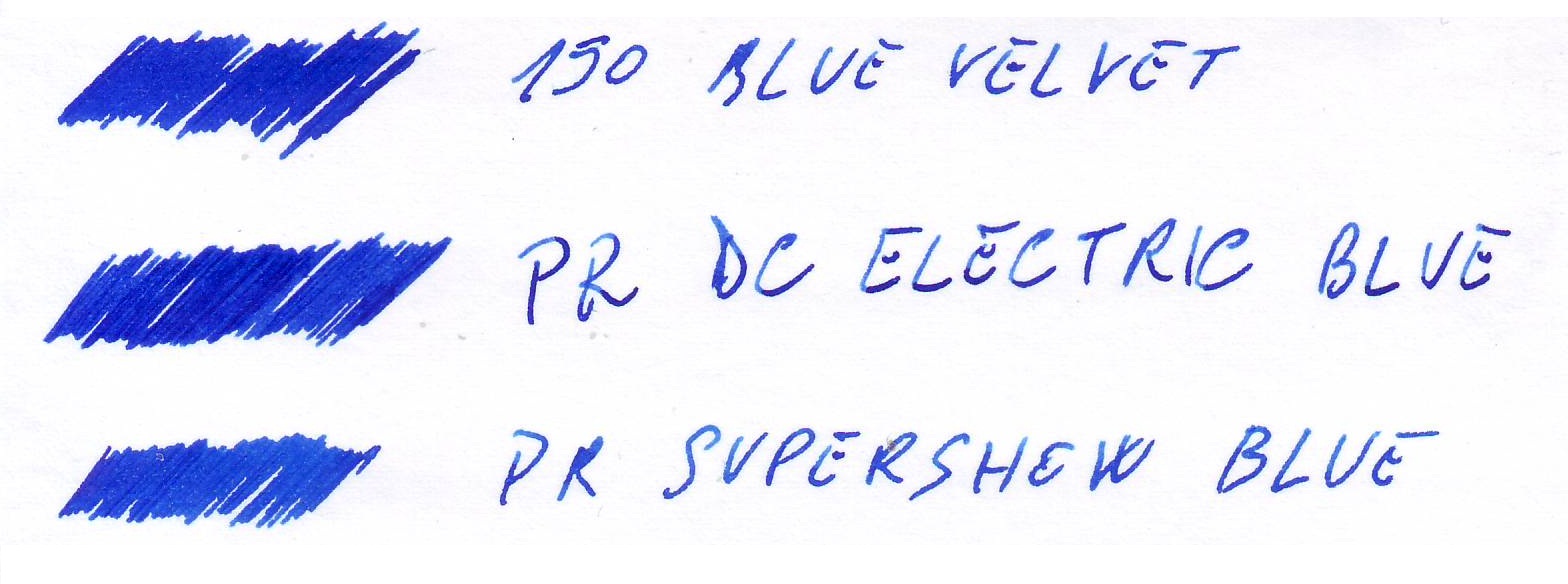 150 BLUE VELVET
PR DC ELECTRIC BLUE
PR SUPERSHEW BLUE